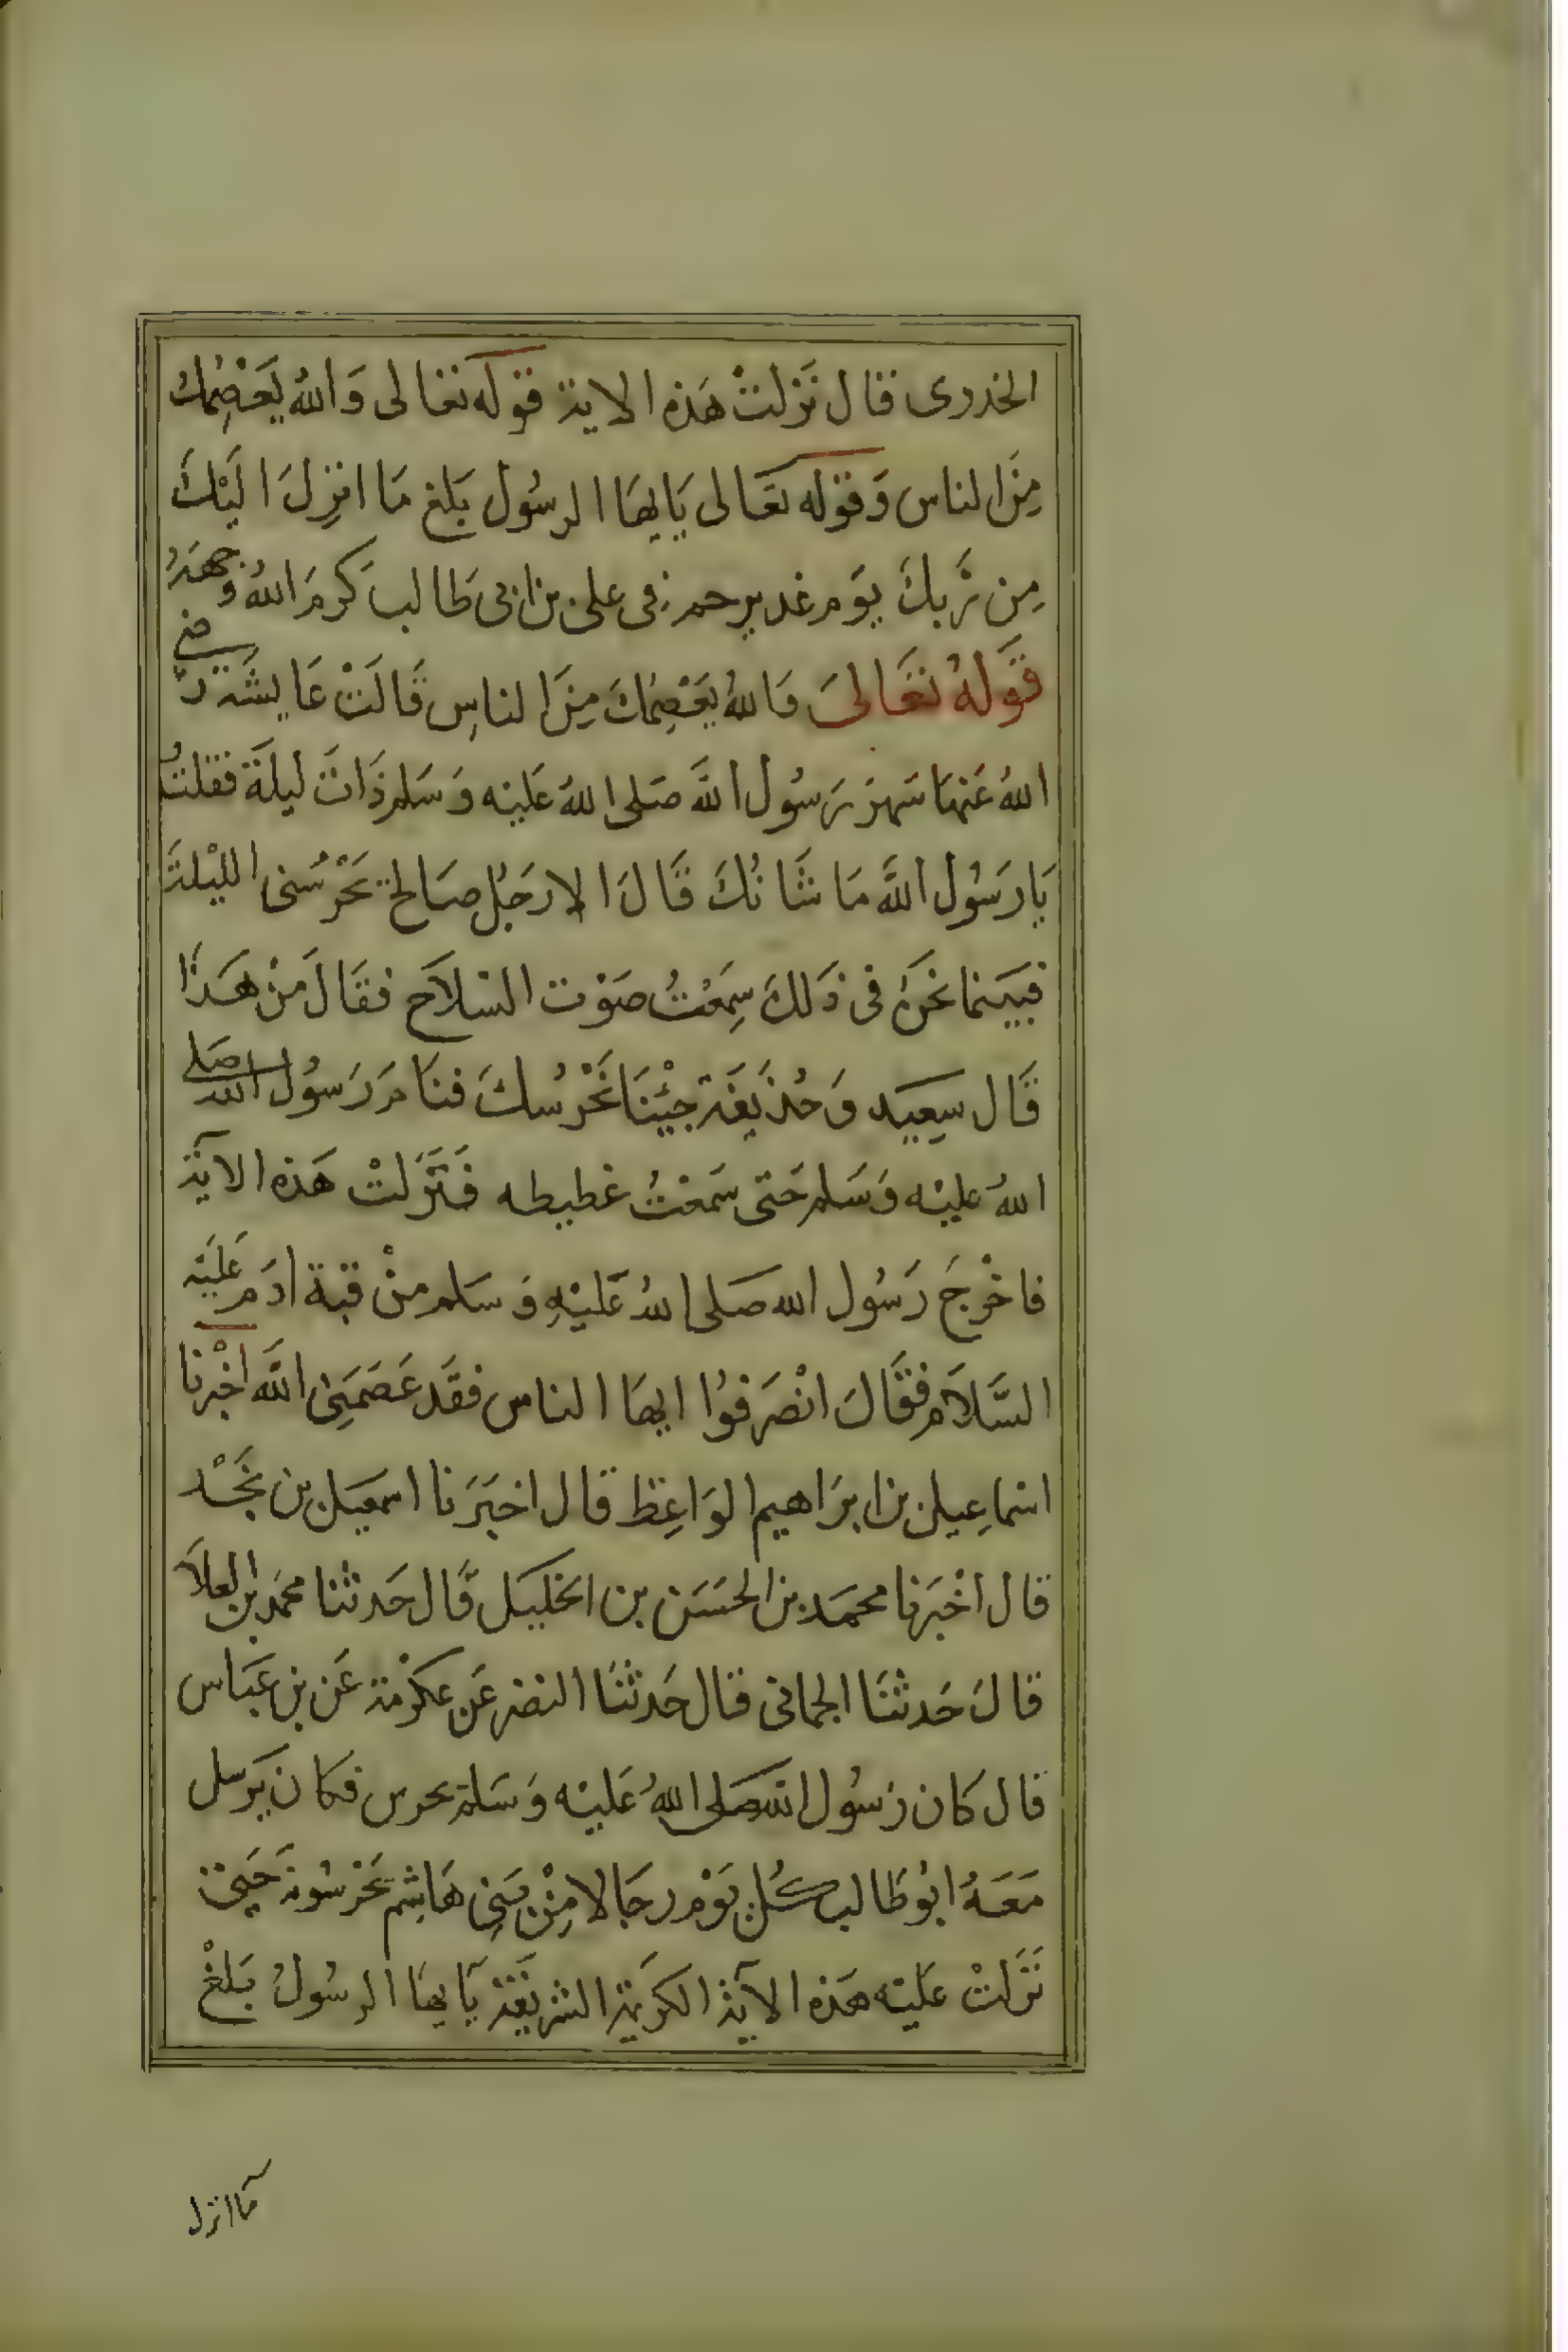 الخدرى قال نَزلتْ هَذه الاية قوله تعالى وَاللهُ يَعْصِمُك
مِنَ الناس وَقوله تعَالى يَايهَا الرسُول بَلغ مَا انزِلَ الَيْكَ
مِن رَّبكَ يوَم غدير خم فى على بن ابى طَالب كَرمَ اللهُ وجهَهُ
قَولهُ تعَالىَ وَاللهُ يَعْصِمُكَ مِنَ الناسِ قَالَتْ عَايشَة رَضى
اللهُ عَنهَا سَهرَ رَسُول اللهَ صَلى اللهُ عَليْه وَسَلم ذَاتَ ليلَة فقلتُ
يَا رَسُول اللهَ مَا شَانُكَ قَالَ الا رَجُل صَالح يَحْرُسُنى الليْلَة
فبَينما نَحنُ فى ذَلكَ سِمَعْتُ صَوْت السلاَح فقَالَ مَنْ هَذَا
قَال سِعيَد وَحُذَيفَة جئْنَا نَحْرُسكَ فنَامَ رَسُول الله صَلى
اللهُ عليْه وَسَلم حَتى سَمعْتُ غطيطه فَنَزَلتْ هَذه الآيَة
فاخْرجَ رَسُول الله صَلى اللهُ عَليْهِ وَسَلم منْ قبة ادَم عَلَيْه
السَّلاَم فقَالَ انْصَرفوُا ايهَا الناس فقَد عَصَمَنِى اللَّه اخْبرنا
اسْماعِيل بن ابرَاهيم الوَاعِظ قال اخبَرَنا اسمعيَل بن نجَيْد
قال اخْبَرنا محمَد بن الحسَن بن الخليَل قَال حَدثنا محمَد بن العلاَ
قالَ حَدثنَا الحمانى قال حَدثنَا النضر عَن عكرْمَة عَن بن عَبَاس
قال كَان رَسُول الله صَلى اللهُ عَليْه وَسَلم يحرس فكان يَرسل
مَعَهُ ابوُ طَالب كُل يَوْم رجَالا مِنْ بَنِى هَاشِم يَحْرسُونه حَتى
نَزَلتْ عَليْه هَذه الآية الكرَيمَة الشريفَة يَايهَا الرسُولُ بَلغْ
مَا انزل